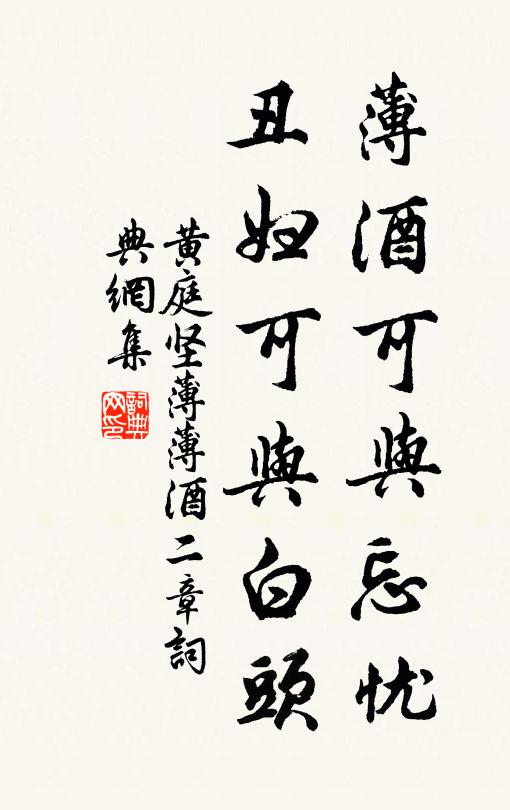 薄酒可與忘忧
丑妇可與白頭
黄庭坚薄薄酒二章詞
典網集
詞典网印